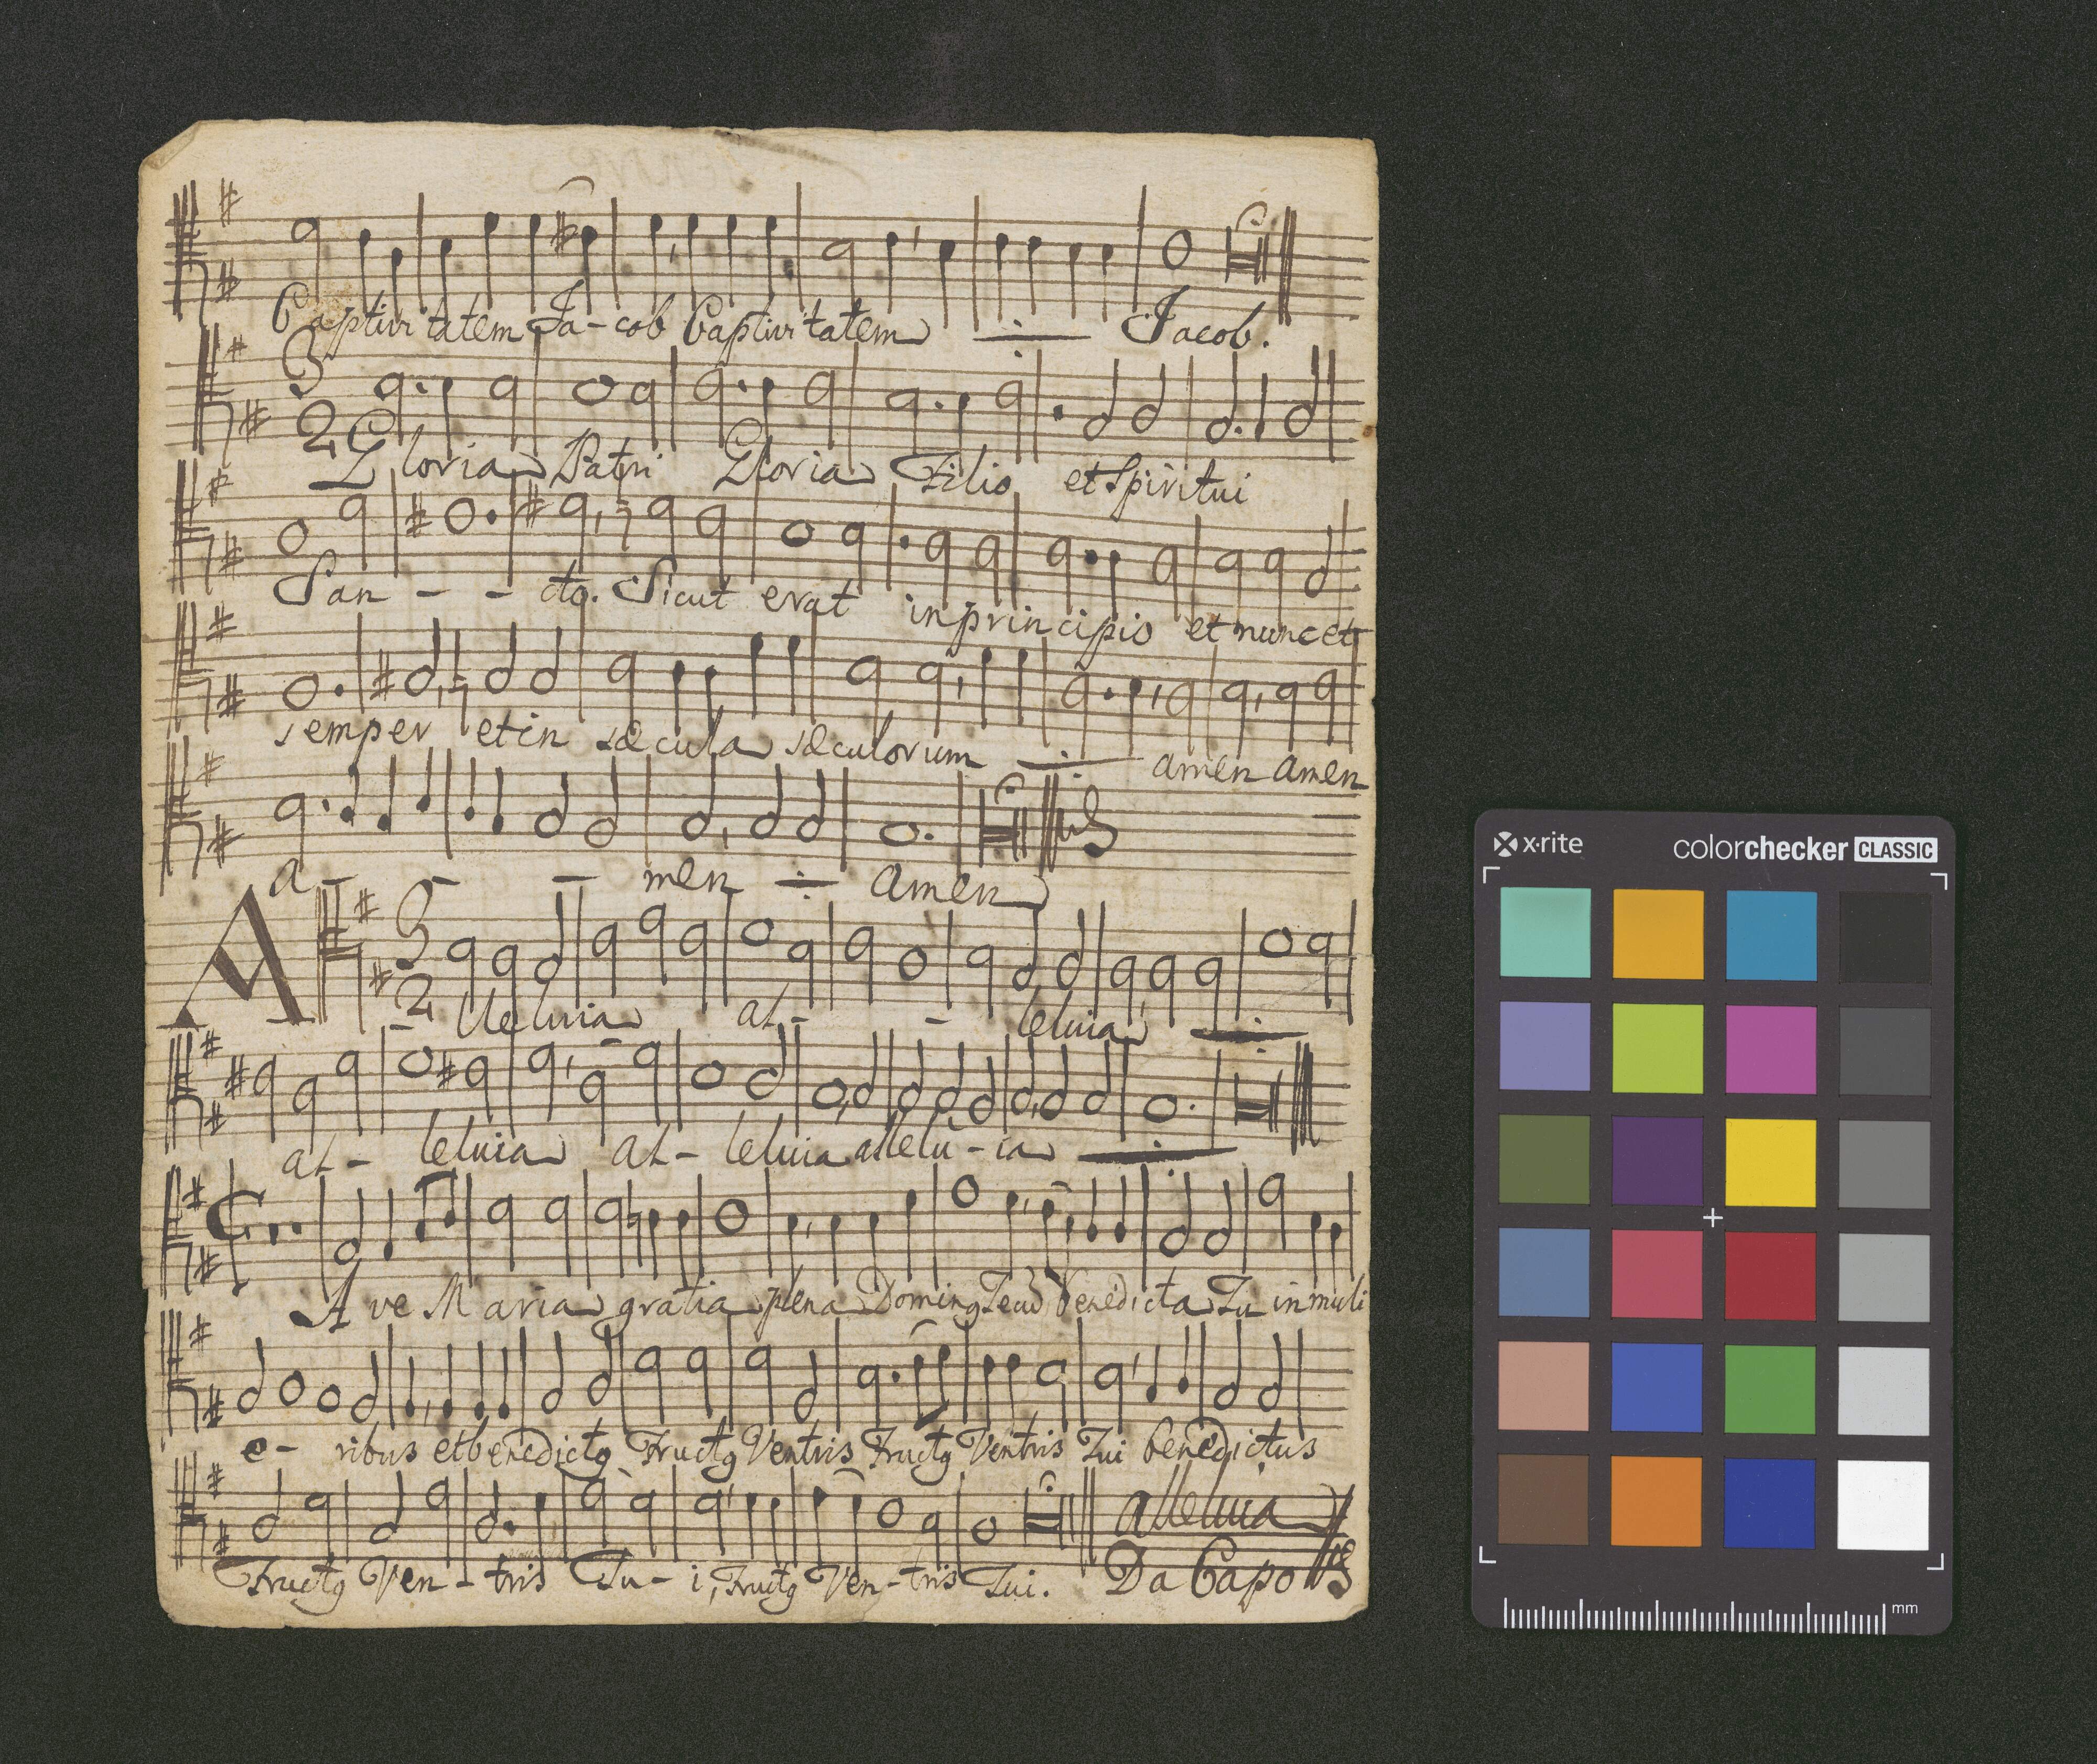 Captivitatem Ja-cob Captivitatem Jacob.
3
2 Gloria Patri Gloria Filio et Spiritui
San - - cto. Sicut erat in principio et nunc et
semper et in sæcula sæculorum amen amen
a - - - men amen
3
2
A - - lleluia al - - leluia
al - leluia al - leluia allelu - ia
Ave Maria gratia plena Doming Tecu benedicta Tu in muli
e - ribus et benedictg Fructg Ventris Fructg Ventris Tui benedictus
Fructg Ven - tris Tu - i, Fructg Ven - tris Tui.
alleluia
Da Capo
x·rite colorchecker CLASSIC
mm